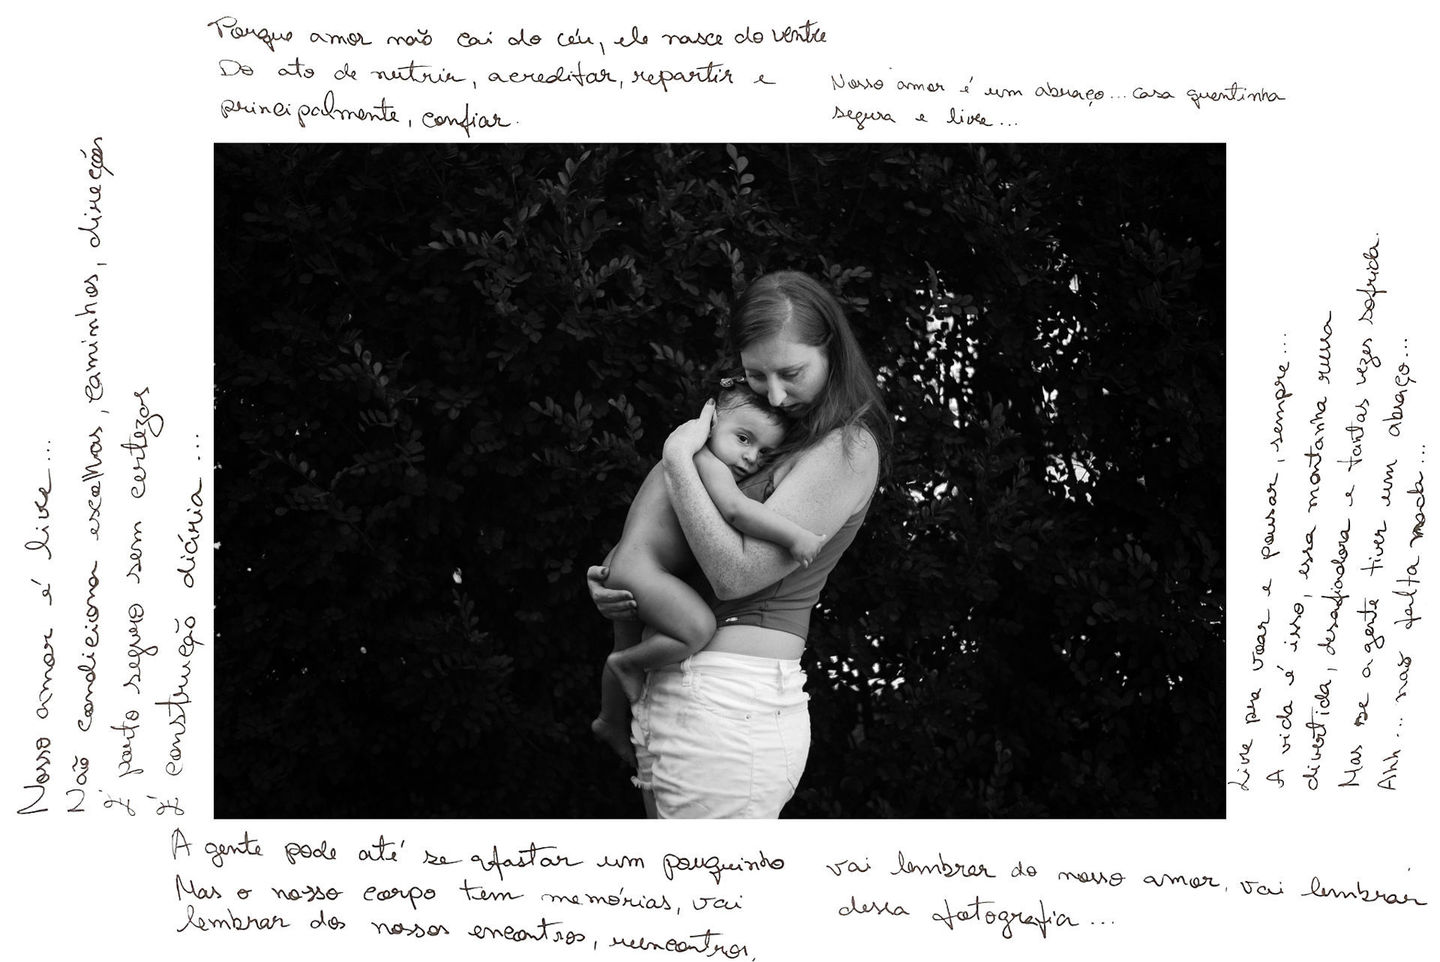 Porque amor não cai do céu, ele nasce do ventre
Do ato de nutrir, acreditar, repartir e
principalmente, confiar.
Nosso amor é um abraço... casa quentinha
segura e livre...
Nosso amor é livre...
Não condiciona escolhas, caminhos, direções
É porto seguro sem certezas
É construção diária...
Livre pra voar e pousar, sempre...
A vida é isso, essa montanha russa
divertida, desafiadora e tantas vezes sofrida.
Mas se a gente tiver um abraço...
Ahh... não falta nada...
A gente pode até se afastar um pouquinho
Mas o nosso corpo tem memórias, vai
lembrar dos nossos encontros, reencontros,
vai lembrar do nosso amor, vai lembrar
dessa fotografia...